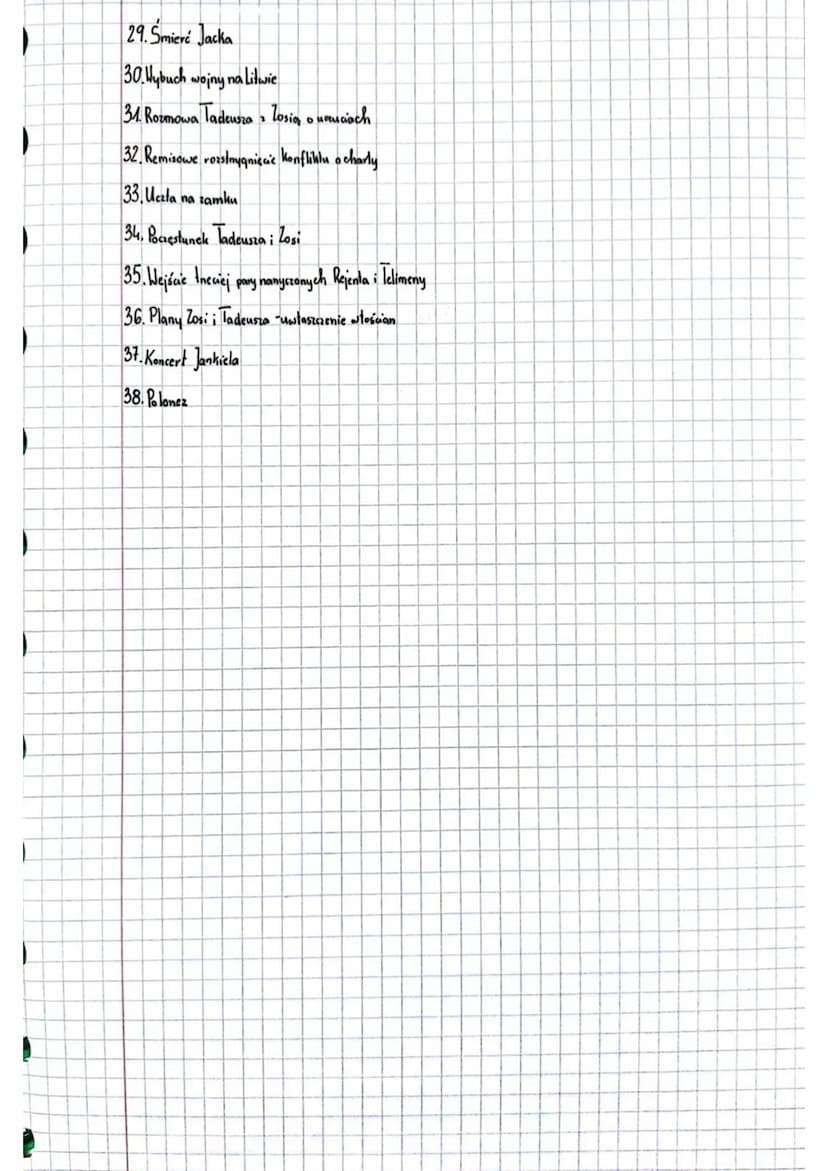 29. Śmierć Jacka
30. Wybuch wojny na Litwie
31. Rozmowa Tadeusza z Zosią o uczuciach
32. Remisowe rozstrzygnięcie konfliktu o charty
33. Uczta na zamku
34. Poczęstunek Tadeusza i Zosi
35. Wejście trzeciej pary narzeczonych Rejenta i Telimeny
36. Plany Zosi i Tadeusza - uwłaszczenie włościan
37. Koncert Jankiela
38. Polonez